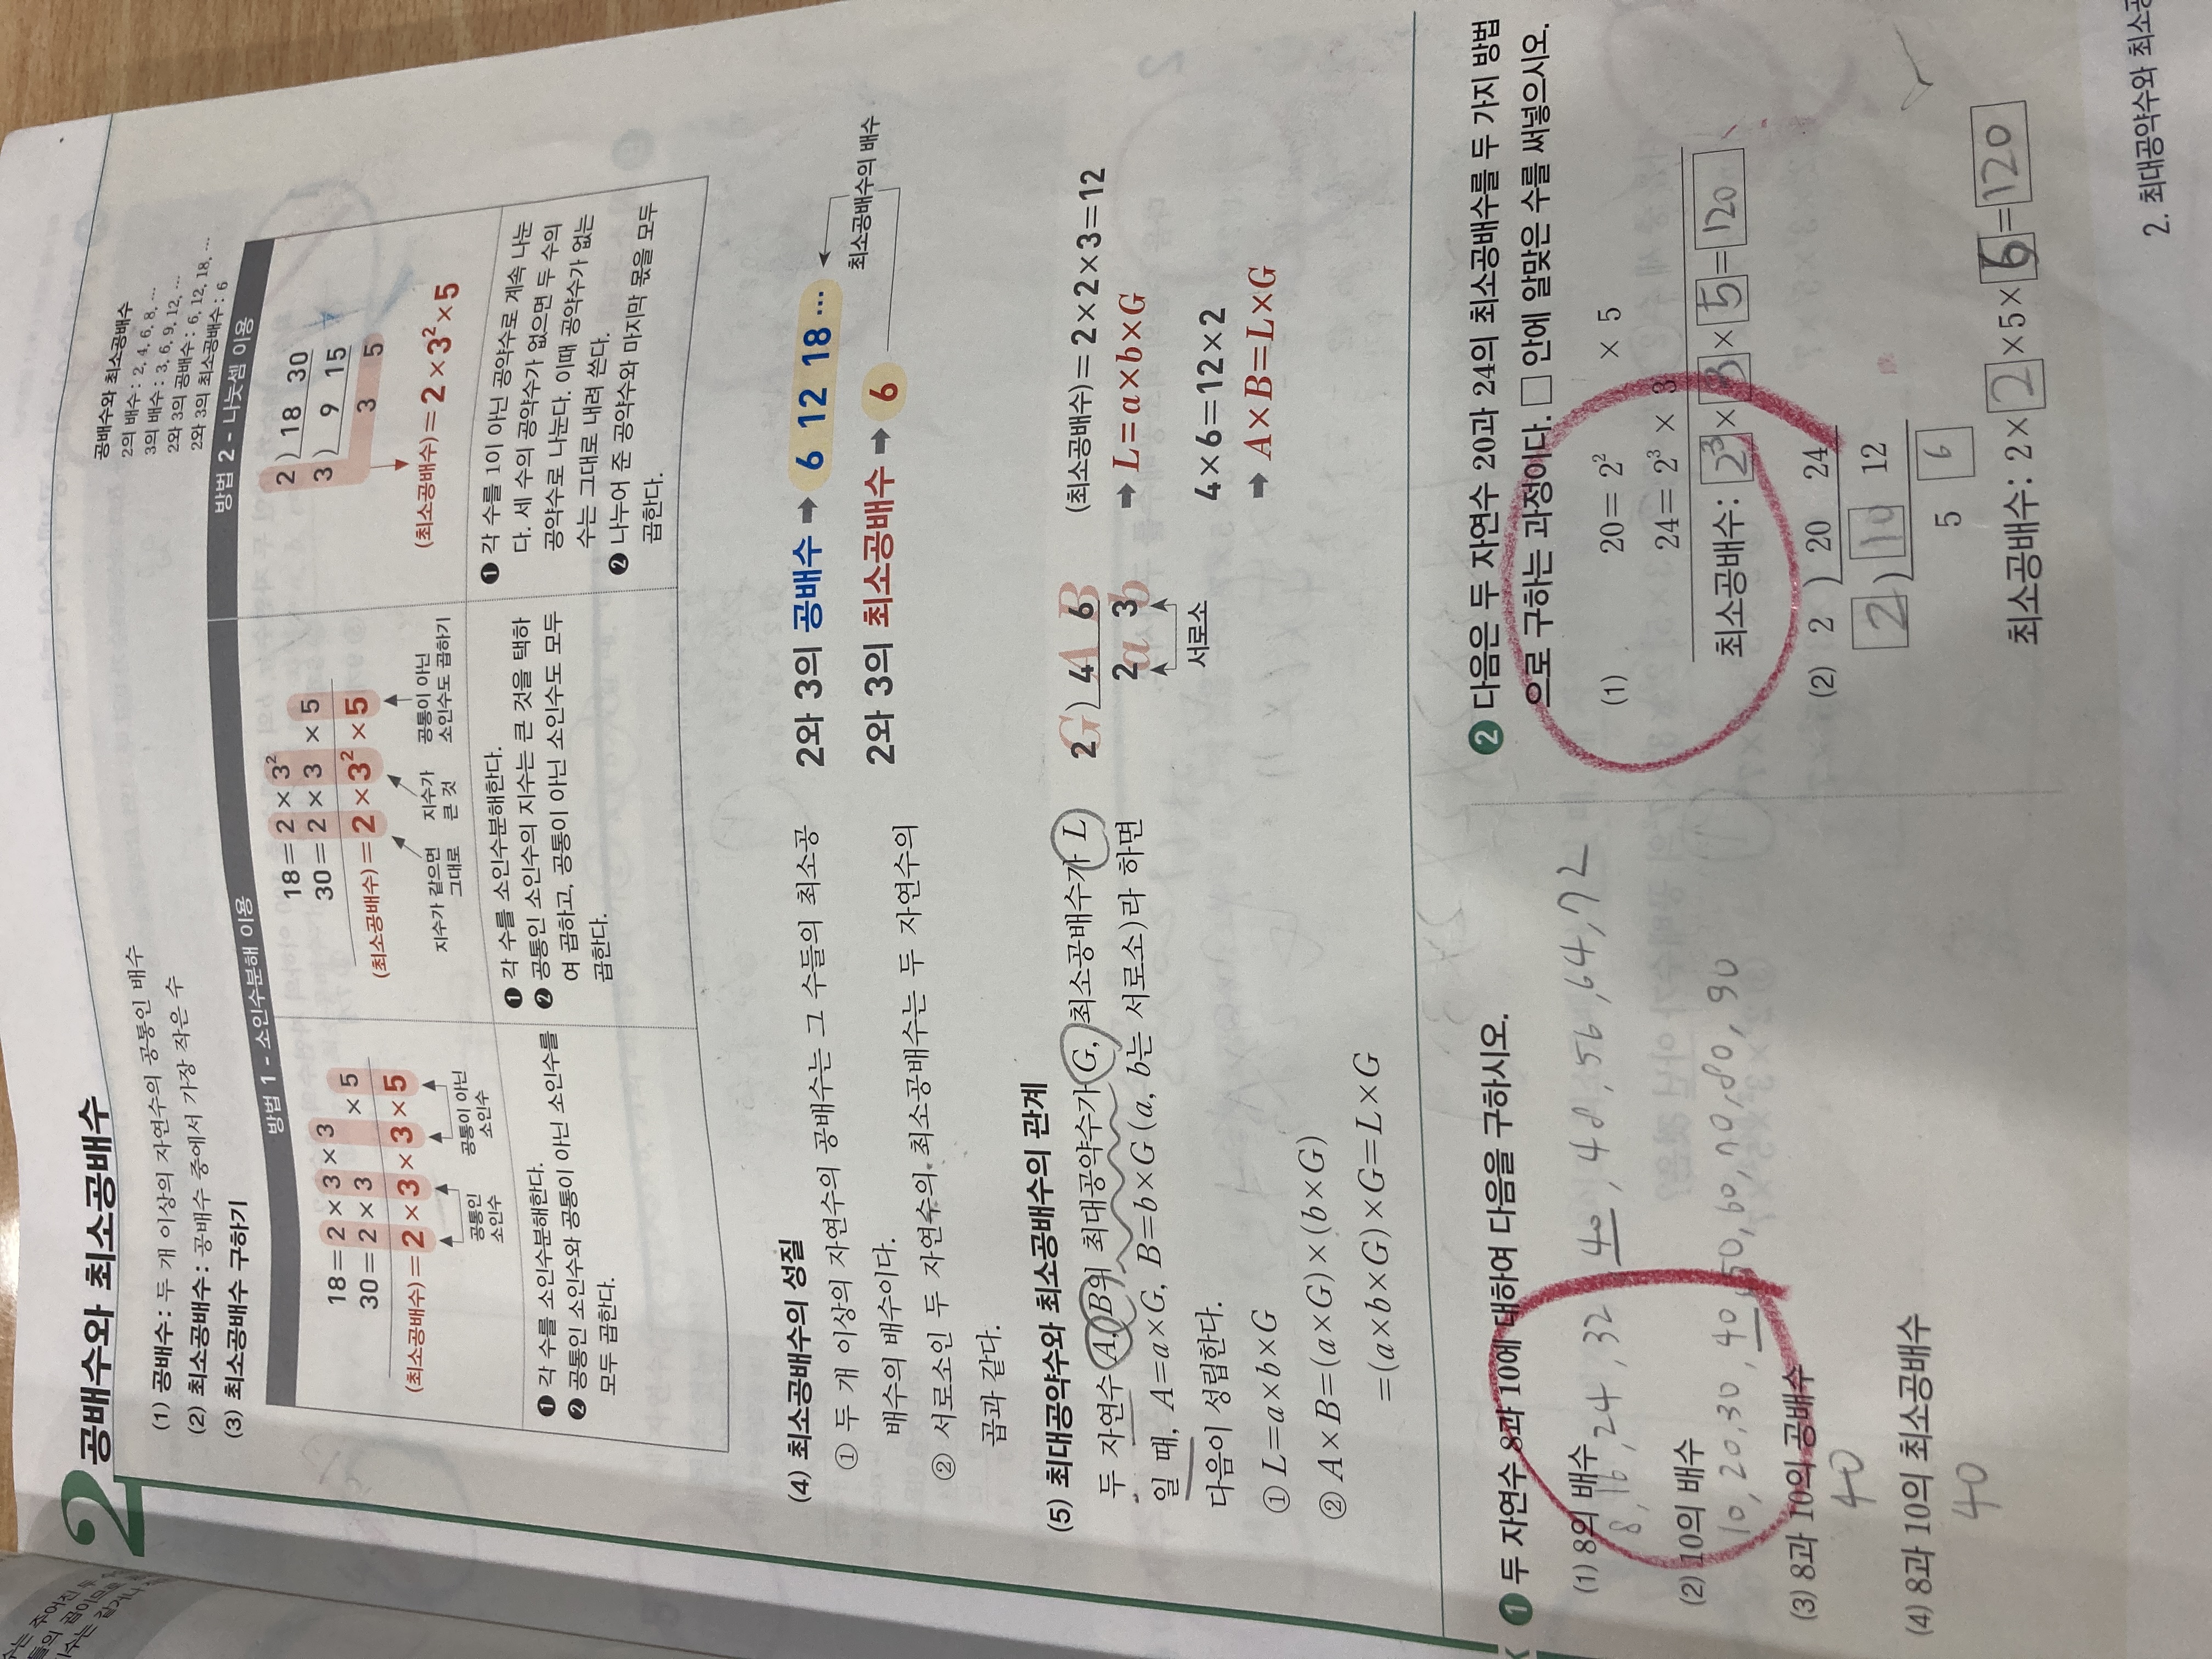 2 공배수와 최소공배수
(1) 공배수 : 두 개 이상의 자연수의 공통인 배수
(2) 최소공배수 : 공배수 중에서 가장 작은 수
(3) 최소공배수 구하기
공배수와 최소공배수
2의 배수 : 2, 4, 6, 8, …
3의 배수 : 3, 6, 9, 12, …
2와 3의 공배수 : 6, 12, 18, …
2와 3의 최소공배수 : 6
방법 1 - 소인수분해 이용
18=2×3×3
30=2×3 ×5
(최소공배수)=2×3×3×5
공통인 소인수
공통이 아닌 소인수
❶ 각 수를 소인수분해한다.
❷ 공통인 소인수와 공통이 아닌 소인수를
모두 곱한다.
18=2×3²
30=2×3 ×5
(최소공배수)=2×3²×5
지수가 같으면 그대로
지수가 큰 것
공통이 아닌 소인수도 곱하기
❶ 각 수를 소인수분해한다.
❷ 공통인 소인수의 지수는 큰 것을 택하
여 곱하고, 공통이 아닌 소인수도 모두
곱한다.
방법 2 - 나눗셈 이용
2 ) 18 30
3 ) 9 15
3 5
(최소공배수)=2×3²×5
❶ 각 수를 1이 아닌 공약수로 계속 나눈
다. 세 수의 공약수가 없으면 두 수의
공약수로 나눈다. 이때 공약수가 없는
수는 그대로 내려 쓴다.
❷ 나누어 준 공약수와 마지막 몫을 모두
곱한다.
(4) 최소공배수의 성질
① 두 개 이상의 자연수의 공배수는 그 수들의 최소공
배수의 배수이다.
② 서로소인 두 자연수의 최소공배수는 두 자연수의
곱과 같다.
2와 3의 공배수 ➡ 6 12 18 …
2와 3의 최소공배수 ➡ 6
최소공배수의 배수
(5) 최대공약수와 최소공배수의 관계
두 자연수 A, B의 최대공약수가 G, 최소공배수가 L
일 때, A=a×G, B=b×G (a, b는 서로소)라 하면
다음이 성립한다.
① L=a×b×G
② A×B=(a×G)×(b×G)
=(a×b×G)×G=L×G
G A B
2 ) 4 6
2 3
a b
서로소
(최소공배수)=2×2×3=12
➡ L=a×b×G
4×6=12×2
➡ A×B=L×G
1 두 자연수 8과 10에 대하여 다음을 구하시오.
(1) 8의 배수
8, 16, 24, 32, 40, 48, 56, 64, 72
(2) 10의 배수
10, 20, 30, 40, 50, 60, 70, 80, 90
(3) 8과 10의 공배수
40
(4) 8과 10의 최소공배수
40
2 다음은 두 자연수 20과 24의 최소공배수를 두 가지 방법
으로 구하는 과정이다. □ 안에 알맞은 수를 써넣으시오.
(1) 20=2² ×5
24=2³×3
최소공배수: 2³×3×5=120
(2) 2 ) 20 24
2 ) 10 12
5 6
최소공배수: 2×2×5×6=120
2. 최대공약수와